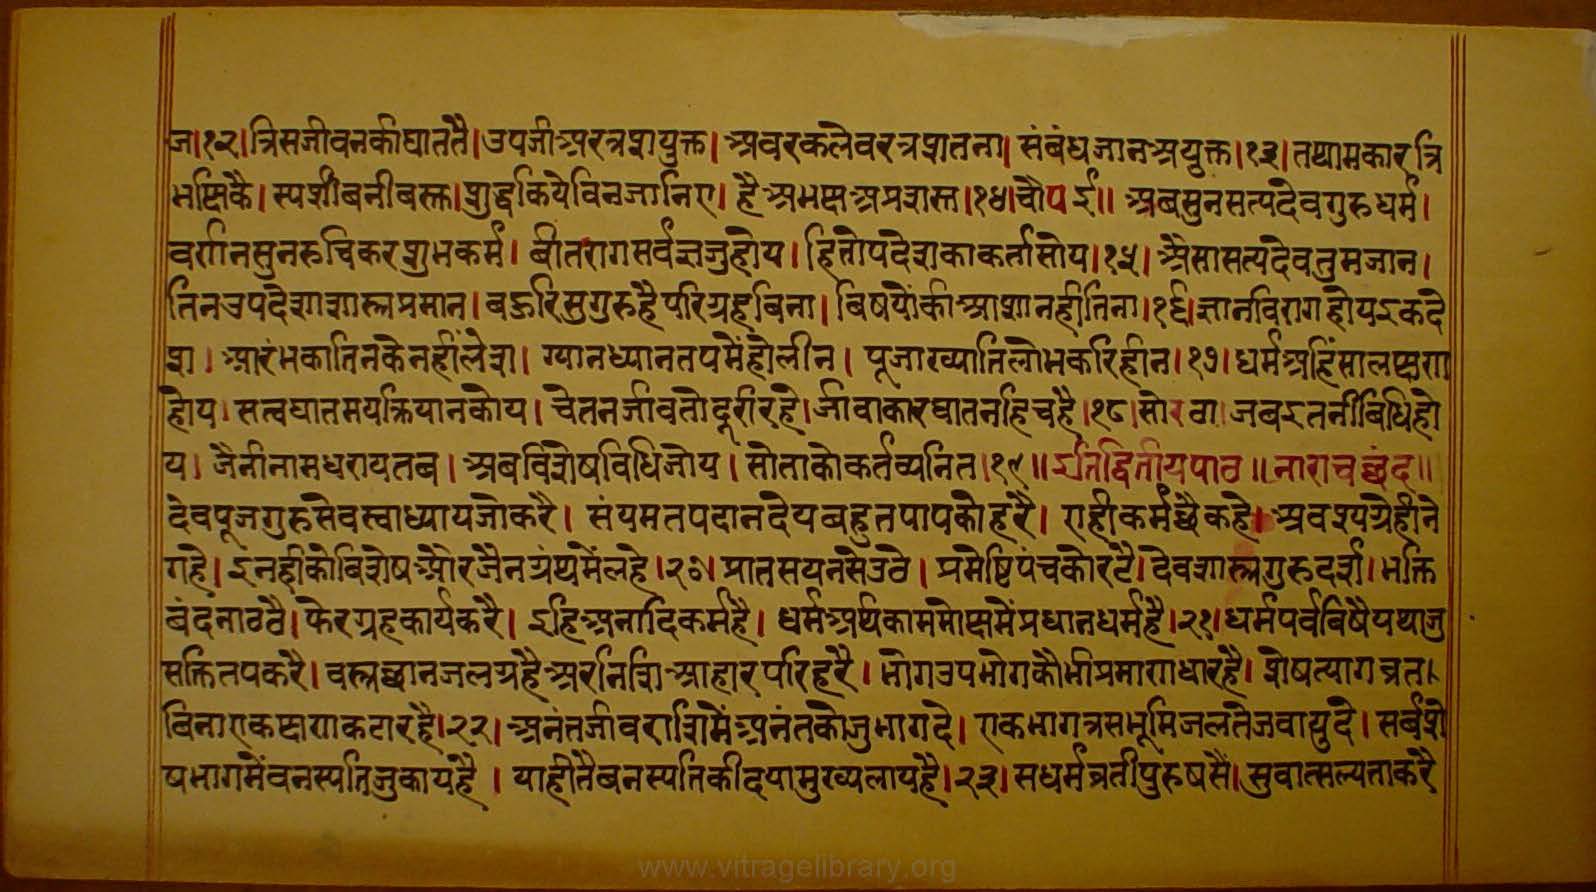 ज।१२।त्रिसजीवनकीघाततै।उपजीअरत्रशयुक्त।अवरकलेवरत्रशतना।संबंधजानअयुक्त।१३।तथामकारत्रि
भष्टिकै।स्पर्शीबनीबस्त।शुद्धकियेविनजानिए।हैअभष्यअप्रशस्त।१४।चौपई॥अबसुनसत्यदेवगुरुधर्म।
वर्णनसुनरुचिकरशुभकर्म।बीतरागसर्वज्ञजुहोय।हितोपदेशकाकर्तासोय।१५।अैसासत्यदेवतुमजान।
तिनउपदेशशास्त्रप्रमान।बहुरिसुगुरुहैपरिग्रहबिना।बिषयोंकीआशानहीतिना।१६।ज्ञानविरागहोयइकदे
श।आरंभकातिनकेनहींलेश।ग्यानध्यानतपमेंहोलीन।पूजाख्यातिलोभकरिहीन।१७।धर्मअहिंसालष्यण
होय।सत्वघातमर्याक्रियानकोय।चेतनजीवतोदूरीरहे।जीवाकारघातनहिचहै।१८।सोरठा।जबइतनीबिधिहो
य।जैनीनामधरायतब।अबविशेषविधिजोय।सोताकोकर्तव्यनित।१९॥इतिद्वितीयपाठ॥नाराचछंद॥
देवपूजगुरुसेवस्वाध्यायजोकरै।संयमतपदानदेयबहुतपापकोहरै।एहीकर्मछैकहे।अवश्यग्रेहीने
गहे।इनहीकोविशेषऔरजैनग्रंथमेंलहे।२०।प्रातसयनसेउठे।प्रमेष्टिपंचकोरटै।देवशास्त्रगुरुदर्श।भक्ति
बंदनाठवै।फेरग्रहकार्यकरै।इहिअनादिकर्महै।धर्मअर्थकाममोष्यमेंप्रधानधर्महै।२१।धर्मपर्वबिषैयथाजु
सक्तितपकरै।वस्त्रछानजलग्रहैअरनिशिआहारपरिहरै।भोगउपभोगकौभीप्रमाणधारहै।शेषत्यागव्रत
विनाएकष्यणकटारहै।२२।अनंतजीवराशिमेंअनंतकोजुभागदे।एकभागत्रसभूमिजलतेजवायुदे।सर्वशे
षभागमेंवनस्पतिजुकायहै।याहीतैबनस्पतिकीदयामुख्यलायहै।२३।सधर्मव्रतीपुरुषसैं।सुवात्सल्यताकरै
www.vitragelibrary.org